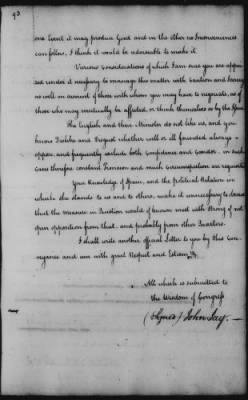 93
one Event it may produce Good and in the other no Inconveniences
can follow, I think it would be adviseable to make it.
Various Considerations of which I am sure you are appri-
zed render it necessary to manage this matter with Caution and Secrecy
as well on account of those with whom you may have to negociate, as of
those who may eventually be affected, or think themselves so by the
The English and their Minister do not like us, and you
know Dislike and Disgust whether well or ill founded always
appear and frequently exclude both Confidence and Candor. in such
Cases therefore constant Prudence and much Circumspection are requisite
Your Knowledge of Spain, and the political Relation in
which she stands to us and to others, make it unnecessary to
that the Measure in Question would if known meet with strong if not
open opposition from that, and probably from other Quarters.
I shall write another official Letter to you by this Con-
veyance and am with great Respect and Esteem &c
All which is submitted to
the Wisdom of Congress
(Signed) John Jay.